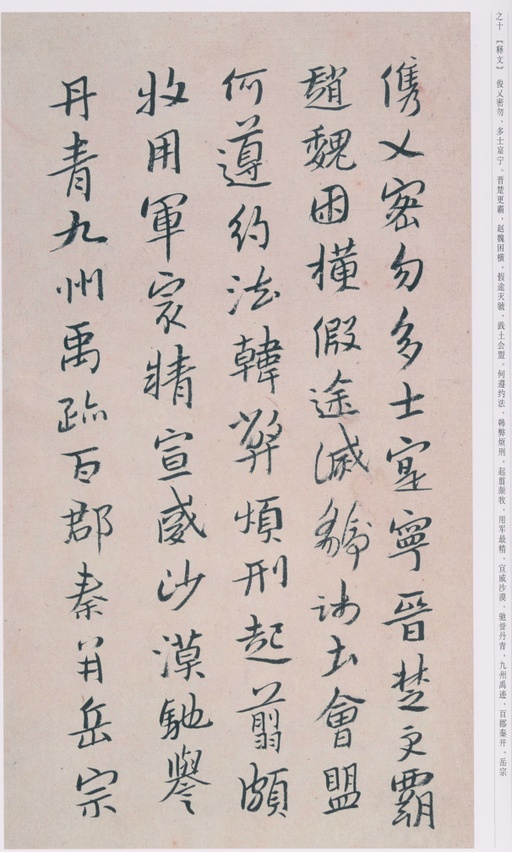 之十 【释文】 俊乂密勿，多士寔宁。晋楚更霸，赵魏困横。假途灭虢，践土会盟。何遵约法，韩弊烦刑。起翦颇牧，用军最精。宣威沙漠，驰誉丹青。九州禹迹，百郡秦并。岳宗
俊乂密勿多士寔寧晉楚更霸
趙魏困橫假途滅虢踐土會盟
何遵約法韓弊煩刑起翦頗
牧用軍宼精宣威沙漠馳譽
丹青九州禹跡百郡秦并岳宗